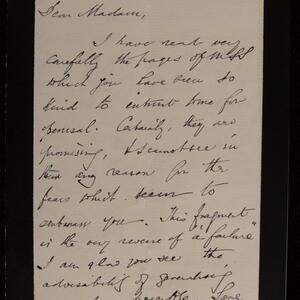 Dear Madam,
I have read very
carefully the pages of MSS
which you have been so
kind to entrust to me for
perusal. Certainly, they are
promising, & I cannot see in
them any reason for the
fears which seem to
embarrass you. This fragment
is the very reverse of "a failure"
I am glad you see the
advisability of